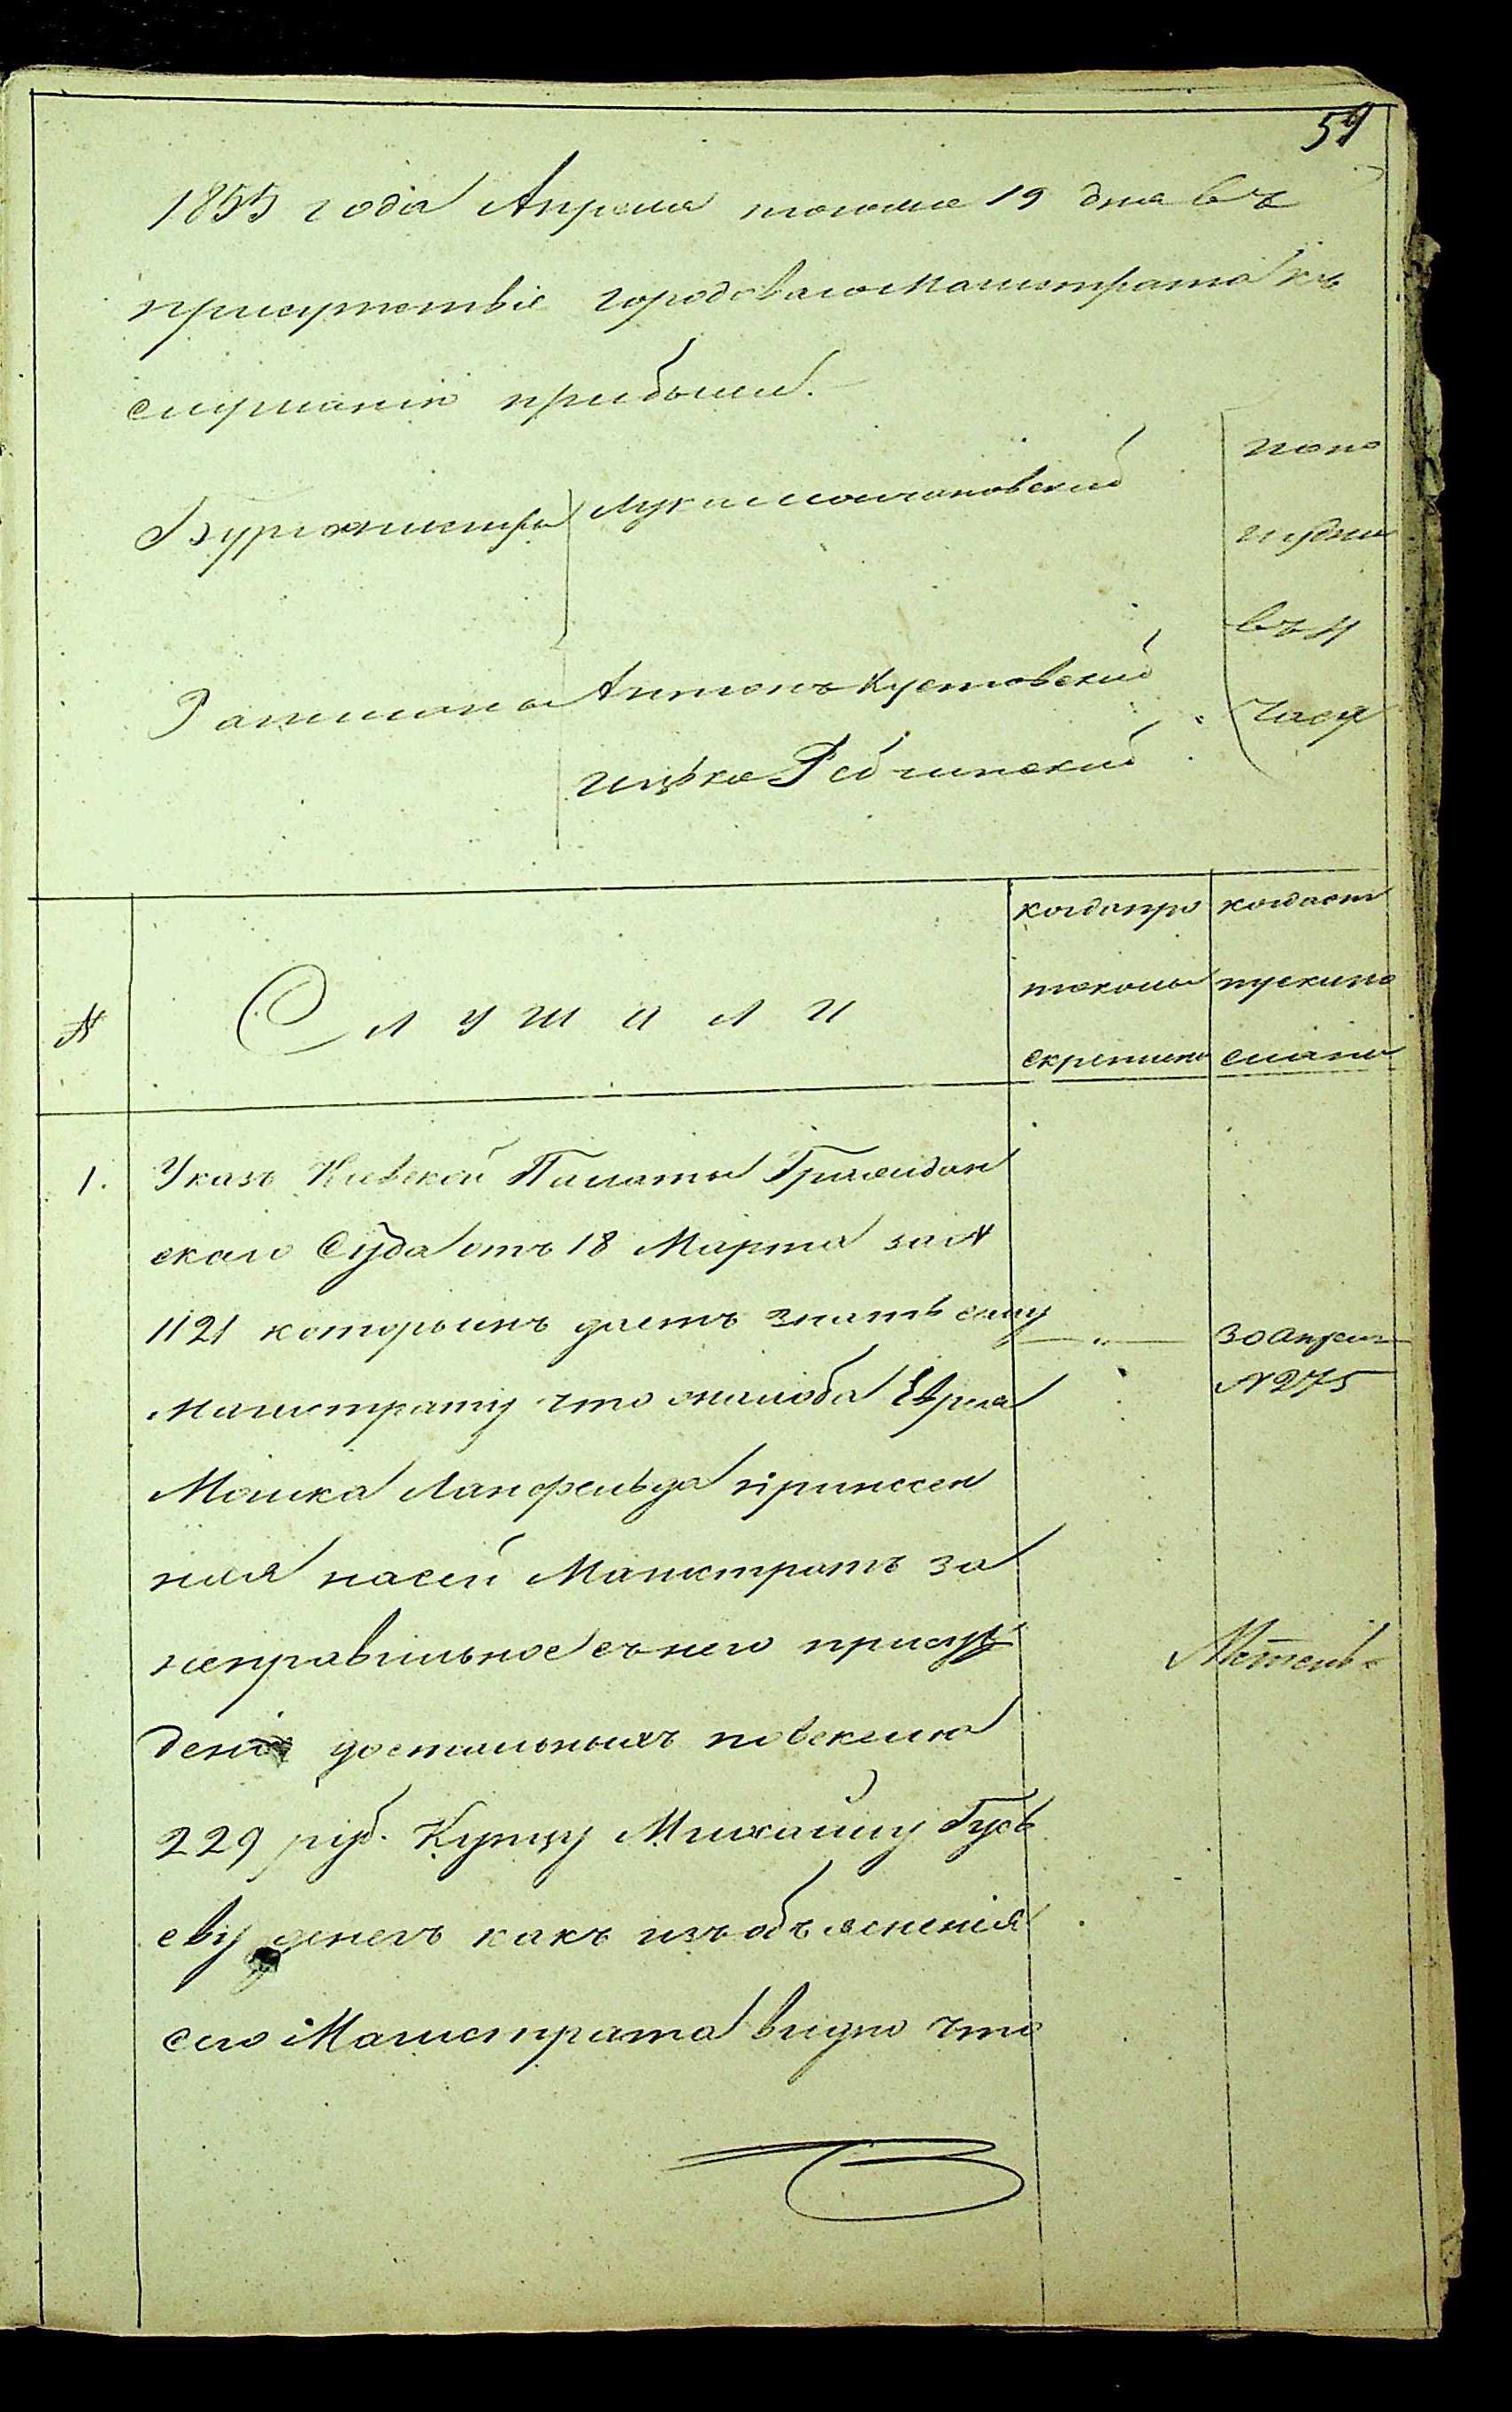 1855 года Апреля 19 дня въ
присутствіе Городоваго Магистрата къ
слушанію прибыли.
Бургомистръ Лука Молчановскій
Ратманы Антонъ Кустовскій
Ицко
по по
лудни
въ
часу
№
Слушали
когда про
токолъ
скрепленъ
когда от
пускъ по
сланъ
1.
Указъ Кіевской Палаты Граждан
скаго Суда отъ 18 Марта за №
1121 которымъ даетъ знать сему
Магистрату что жалоба Еврея
Мошка принесен
ная на сей Магистратъ за
неправильное съ него присуж
деніе достальныхъ по векселю
229 руб. Купцу Михаилу Гусь
еву денегъ какъ изъ объясненія
сего Магистрата видно что
30 Апреля
№ 275